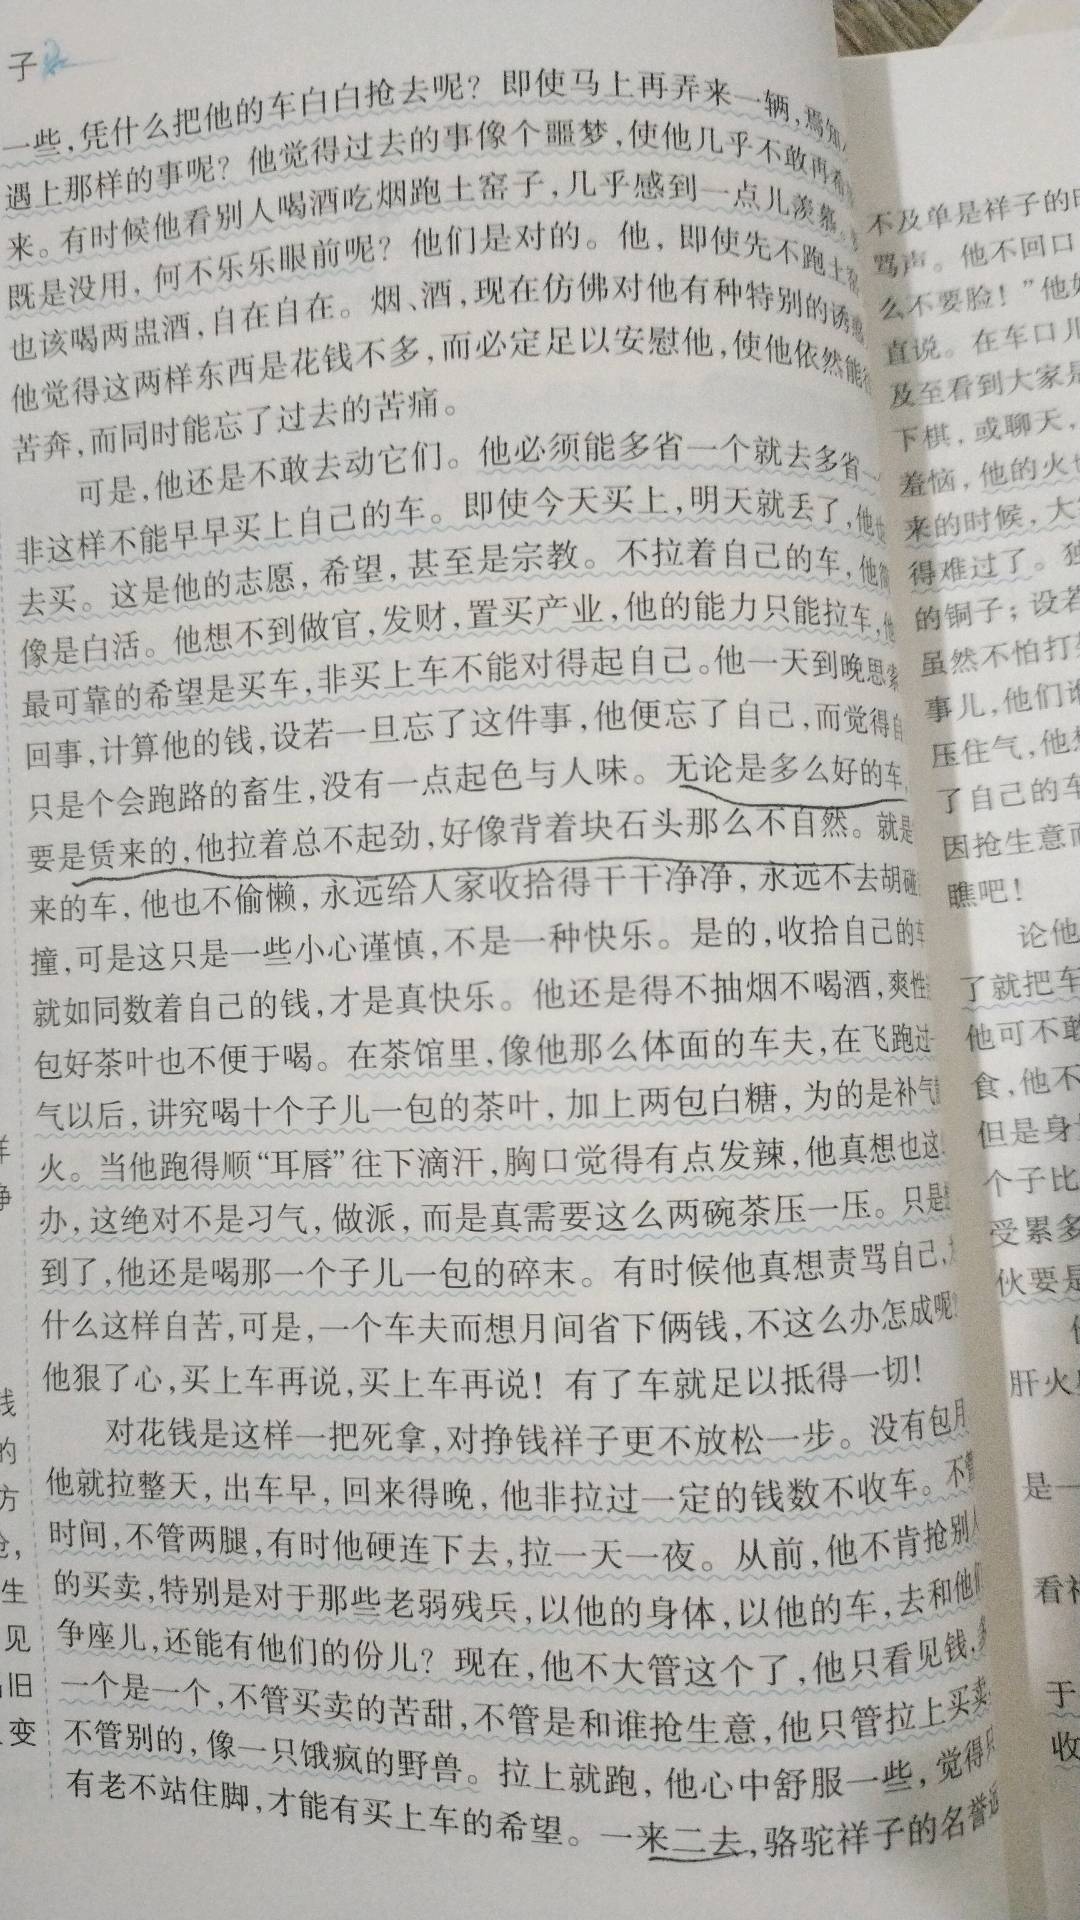 子
一些,凭什么把他的车白白抢去呢？即使马上再弄来一辆,焉知
遇上那样的事呢？他觉得过去的事像个噩梦,使他几乎不敢再希
来。有时候他看别人喝酒吃烟跑土窑子,几乎感到一点儿羡慕。
既是没用,何不乐乐眼前呢？他们是对的。他,即使先不跑土窑
也该喝两盅酒,自在自在。烟、酒,现在仿佛对他有种特别的诱惑
他觉得这两样东西是花钱不多,而必定足以安慰他,使他依然能
苦奔,而同时能忘了过去的苦痛。
可是,他还是不敢去动它们。他必须能多省一个就去多省一
非这样不能早早买上自己的车。即使今天买上,明天就丢了,他也
去买。这是他的志愿,希望,甚至是宗教。不拉着自己的车,他
像是白活。他想不到做官,发财,置买产业,他的能力只能拉车,他
最可靠的希望是买车,非买上车不能对得起自己。他一天到晚思索
回事,计算他的钱,设若一旦忘了这件事,他便忘了自己,而觉得自
只是个会跑路的畜生,没有一点起色与人味。无论是多么好的车,
要是赁来的,他拉着总不起劲,好像背着块石头那么不自然。就是
来的车,他也不偷懒,永远给人家收拾得干干净净,永远不去胡碰
撞,可是这只是一些小心谨慎,不是一种快乐。是的,收拾自己的车
就如同数着自己的钱,才是真快乐。他还是得不抽烟不喝酒,爽性
包好茶叶也不便于喝。在茶馆里,像他那么体面的车夫,在飞跑过
气以后,讲究喝十个子儿一包的茶叶,加上两包白糖,为的是补气
火。当他跑得顺“耳唇”往下滴汗,胸口觉得有点发辣,他真想也这
办,这绝对不是习气,做派,而是真需要这么两碗茶压一压。只是
到了,他还是喝那一个子儿一包的碎末。有时候他真想责骂自己,
什么这样自苦,可是,一个车夫而想月间省下俩钱,不这么办怎成呢？
他狠了心,买上车再说,买上车再说！有了车就足以抵得一切！
对花钱是这样一把死拿,对挣钱祥子更不放松一步。没有包月
他就拉整天,出车早,回来得晚,他非拉过一定的钱数不收车。不管
时间,不管两腿,有时他硬连下去,拉一天一夜。从前,他不肯抢别人
的买卖,特别是对于那些老弱残兵,以他的身体,以他的车,去和他们
争座儿,还能有他们的份儿？现在,他不大管这个了,他只看见钱,
一个是一个,不管买卖的苦甜,不管是和谁抢生意,他只管拉上买卖
不管别的,像一只饿疯的野兽。拉上就跑,他心中舒服一些,觉得只
有老不站住脚,才能有买上车的希望。一来二去,骆驼祥子的名誉
钱
的
方
生
见
旧
变
不及单是祥子的
骂声。他不回口
么不要脸！”他
直说。在车口儿
及至看到大家是
下棋,或聊天,
羞恼,他的火
来的时候,大
得难过了。
的铜子；设若
虽然不怕打
事儿,他们
压住气,他
了自己的车
因抢生意而
瞧吧！
论他
了就把车
他可不敢
食,他不
但是身
个子比
受累多
伙要是
肝火
是一
看
于
收